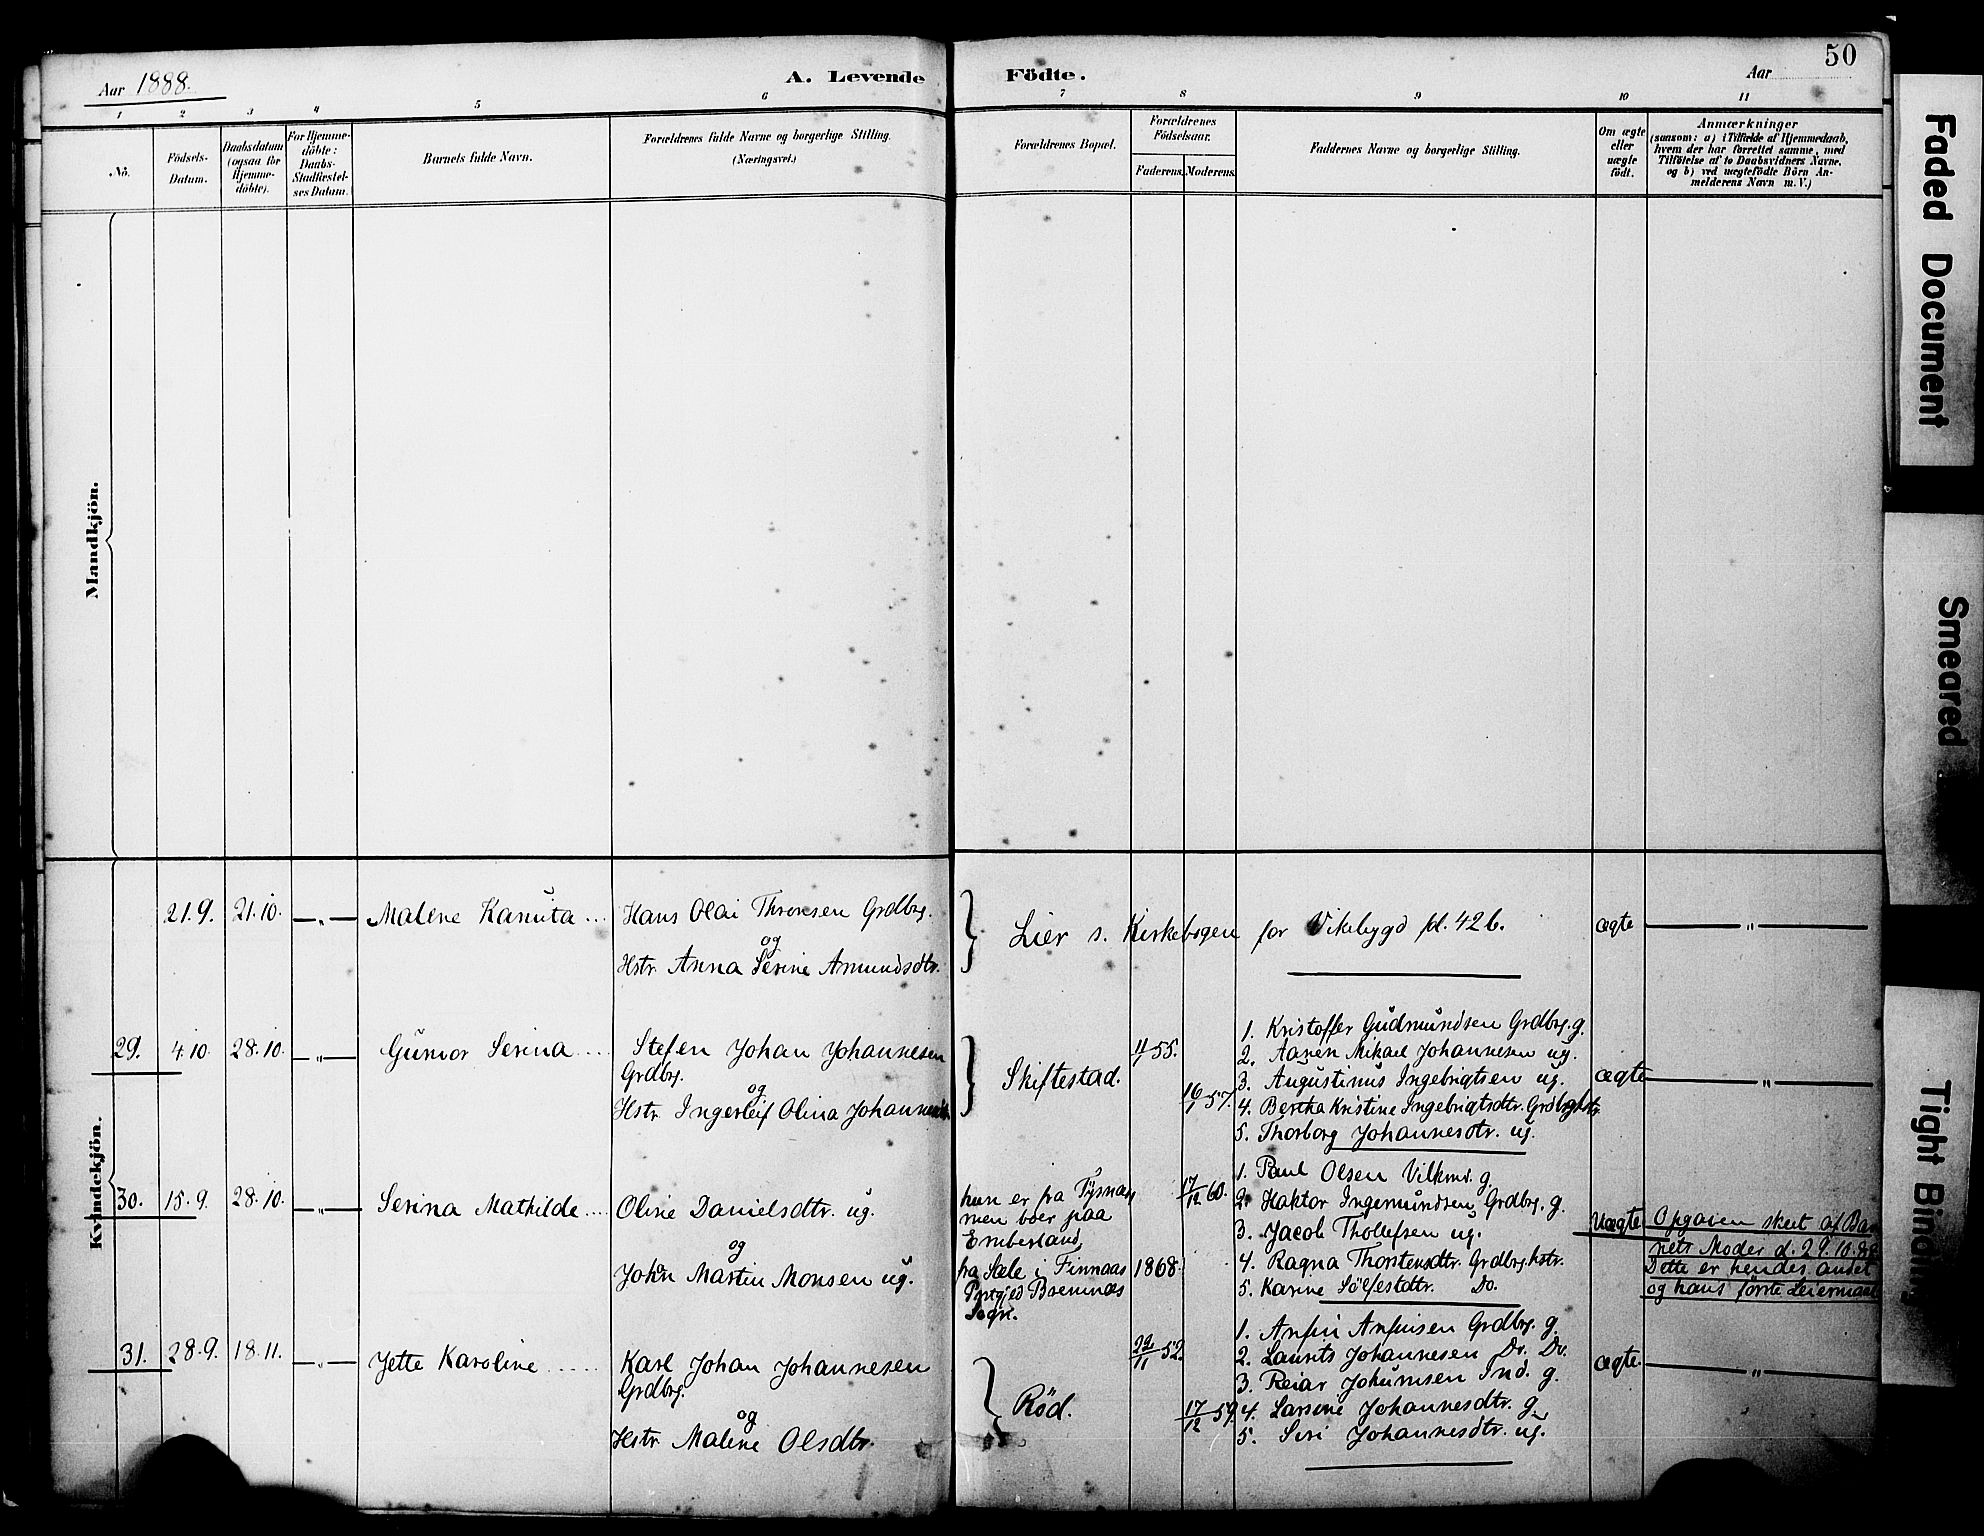 50
Aar 1888.
A. Levende Födte.
Aar
1 2 3 4 5 6 7 8 9 10 11
No.
Födsels-Datum.
Daabsdatum (ogsaa for Hjemme-döbte).
For Hjemme-döbte: Daabs-Stadfæstel-ses Datum.
Barnets fulde Navn.
Forældrenes fulde Navne og borgerlige Stilling.
(Næringsvei.)
Forældrenes Bopæl.
Forældrenes Födselsaar.
Faderens. Moderens.
Faddernes Navne og borgerlige Stilling.
Om ægte eller uægte födt.
Anmærkninger
(saasom: a) i Tilfælde af Hjemmedaab,
hvem der har forrettet samme, med
Tilföielse af to Daabsvidners Navne.
og b) ved uægtefödte Börn An-
melderens Navn m. V.)
Mandkjön.
Kvindekjön.
21.9. 21.10. —„— Malene Kanuta ... Hans Olai Thronsen Grdbrg.
og
Hstr. Anna Serine Amundsdtr.
Lier s. Kirkebogen for Vikebygd fol. 42 b. ægte —„—
29. 4.10. 28.10. —„— Gunvor Serina ... Stefen Johan Johannesen
Grdbrg.
og
Hstr. Ingerleif Olina
Skiftestad. 55.
16/1 57.
1. Kristoffer Gudmundsen Grdbrg. g.
2. Aanen Mikael Johannesen ug.
3. Augustinus Ingebrigtsen ug.
4. Bertha Kristine Ingebrigtsdtr. Grdbrghstr.
5. Thorborg Johannesdtr. ug.
ægte —„—
30. 15.9. 28.10. —„— Serina Mathilde .... Oline Danielsdtr. ug.
og
John Martin Monsen ug.
hun er fra Tysnæs
men boer paa
Emberland,
fra Sæle i Finnaas
Prstgjed Bremnæs
Sogn.
17/12 60.
1868.
1. Paul Olsen g.
2. Haktor Ingemundsen Grdbrg. g.
3. Jacob Thollefsen ug.
4. Ragna Thorstensdtr. Grdbrg.hstr.
5. Karine Sölfestdtr. Do.
Uægte
Opgaven skeet af Bar
nets Moder d. 29.10.88
Dette er hendes andet
og hans förste Leiermaal
31. 28.9. 18.11. —„— Jette Karoline ..... Karl Johan Johannesen
Grdbrg.
og
Hstr. Malene Olsdtr.
Röd.
22/11 52.
17/12 59.
1. Anfin Anfinsen Grdbrg. g.
2. Laurits Johannesen Do. Do.
3. Reiar Johannesen Ind. g.
4. Larsine Johannesdtr. g.
5. Siri Johannesdtr. ug.
ægte. —„—
Faded Document
Smeared
Tight Binding